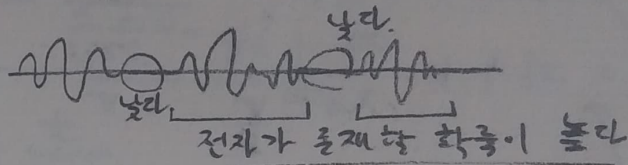 낮다.
낮다.
전자가 존재할 확률이 높다